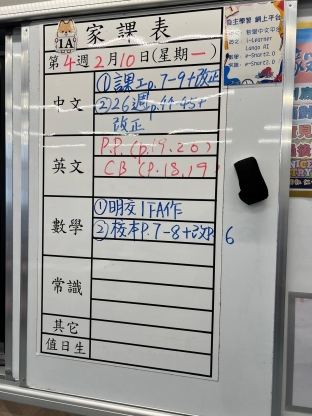 1A
家課表
第4週2月10日(星期一)
中文
①課工p.7-9+改正
②26週p.44-45+
改正
英文
P.P. (p.19, 20)
CB (p.18, 19)
數學
②校本P.7-8+改P.6
常識
其它
值日生
自主學習 網上平台
i-Learner
e-Smart2.0
e-Smart2.0